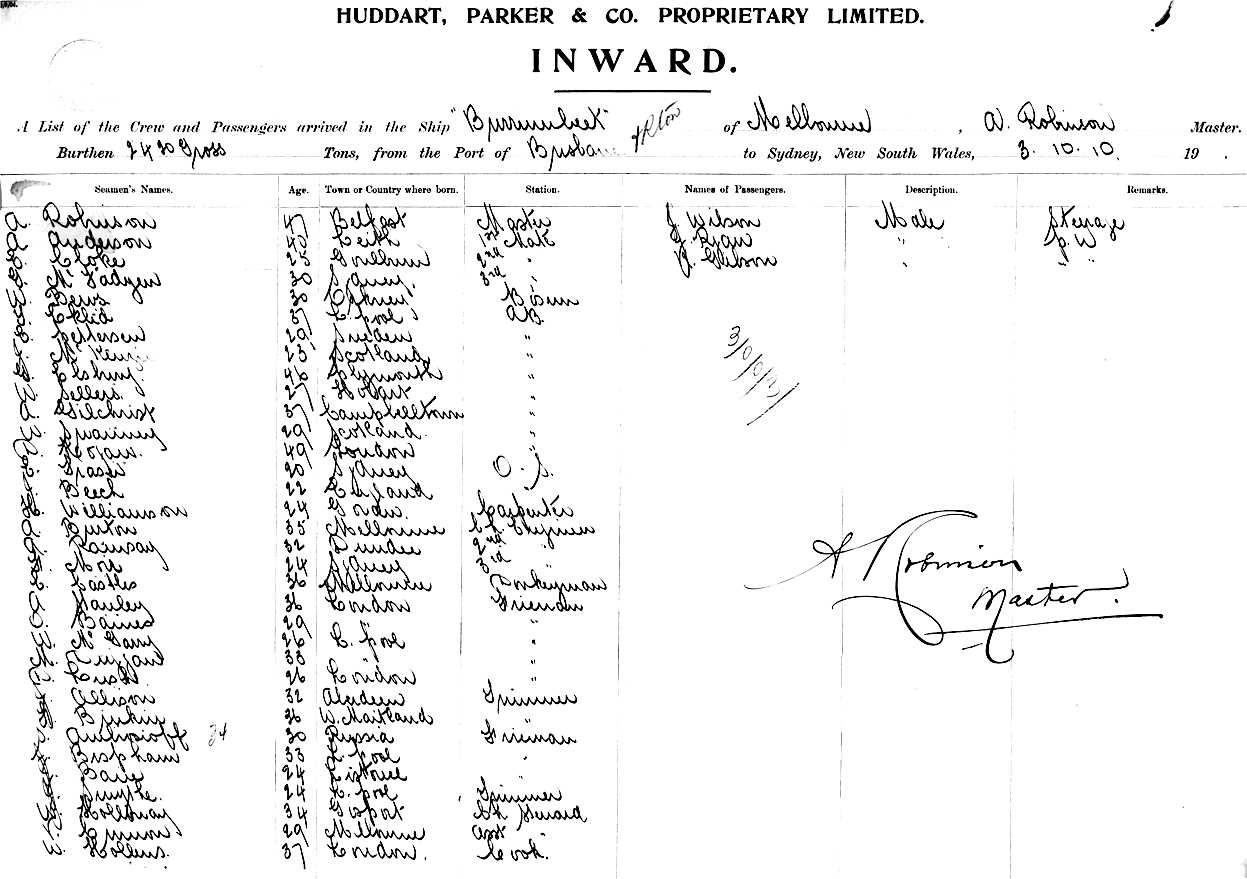 HUDDART, PARKER & CO. PROPRIETARY LIMITED.
INWARD.
A List of the Crew and Passengers arrived in the Ship "Burrumbeet" of Melbourne, A. Robinson Master.
Burthen 2420 Gross Tons, from the Port of Brisbane to Sydney, New South Wales, 3.10.10. 19 .
Seamen's Names. Age. Town or Country where born. Station. Names of Passengers. Description. Remarks.
Robinson 47 Belfast Master J Wilson Male Steerage
Anderson 40 Leith 1st Mate J Ryan "
Cloke 25 Goulburn 2nd " J. Gibson " " "
McFadyen 30 Sydney. 3rd "
Bews 30 Orkney Bosun
37 L'pool AB.
Petterson 29 Sweden "
23 Scotland "
46 Plymouth "
Sellers 27 Hobart "
Gilchrist 37 Campbelltown "
29 Scotland. "
49 London "
20 Sydney O. S.
Beech 22 England
Williamson 24 Carpenter
35 Melbourne Ch. Engineer
Ramsay 32 Dundee 2nd "
24 Sydney 3rd
Castles 36 Melbourne Donkeyman
36 London Fireman
Baines 29 "
26 L. pool "
33 "
26 London "
Allison 32 Aberdeen Trimmer
36 W. Maitland "
34 30 Russia Fireman
Bispham 33 L. pool "
24
Smythe. 24 L. pool Trimmer
Holloway 34 Gosport Ch. Steward
29 Melbourne Asst "
Hollins. 37 London. Cook.
A Robinson
Master.